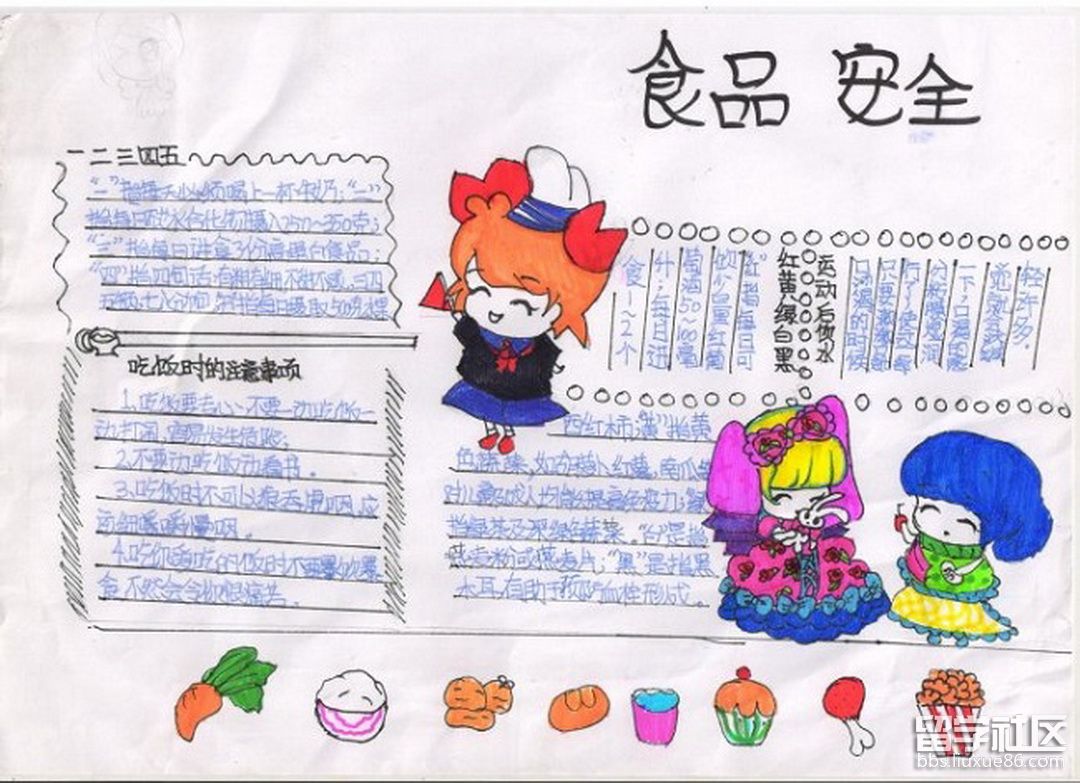 食品 安全
一二三四五
“一”指每天必须喝上一杯牛奶；“二”
指每日碳水化物摄入250～350克；
“三”指每日进食3份高蛋白食品；
“四”指四句话：有粗有细,不甜不咸,三四
五顿,七八分饱
吃饭时的注意事项
1.吃饭要专心,不要一动吃饭一
动打闹,容易发生危险；
2.不要动吃饭动看书.
3.吃饭时不可以狼吞虎咽,应
细嚼慢咽.
4.吃你爱吃的饭时不要暴饮暴
食,不然会令你很痛苦.
运动后饮水
口渴的时候
只要漱漱
行了
分散慢慢润
下,口渴感
觉就会减
轻许多.
红黄绿白黑
“红”指每日可
饮少量红葡
萄酒50～100毫
汁；每日进
食1～2个
西红柿；“黄”指黄
色蔬菜,如胡萝卜、红薯、南瓜
对儿童及成人均能提高免疫力；
指绿茶及深绿蔬菜.“白”是指
燕麦粉或燕麦片；“黑”是指黑
木耳,有助于预防血栓形成.
留学社区
bbs.liuxue86.com